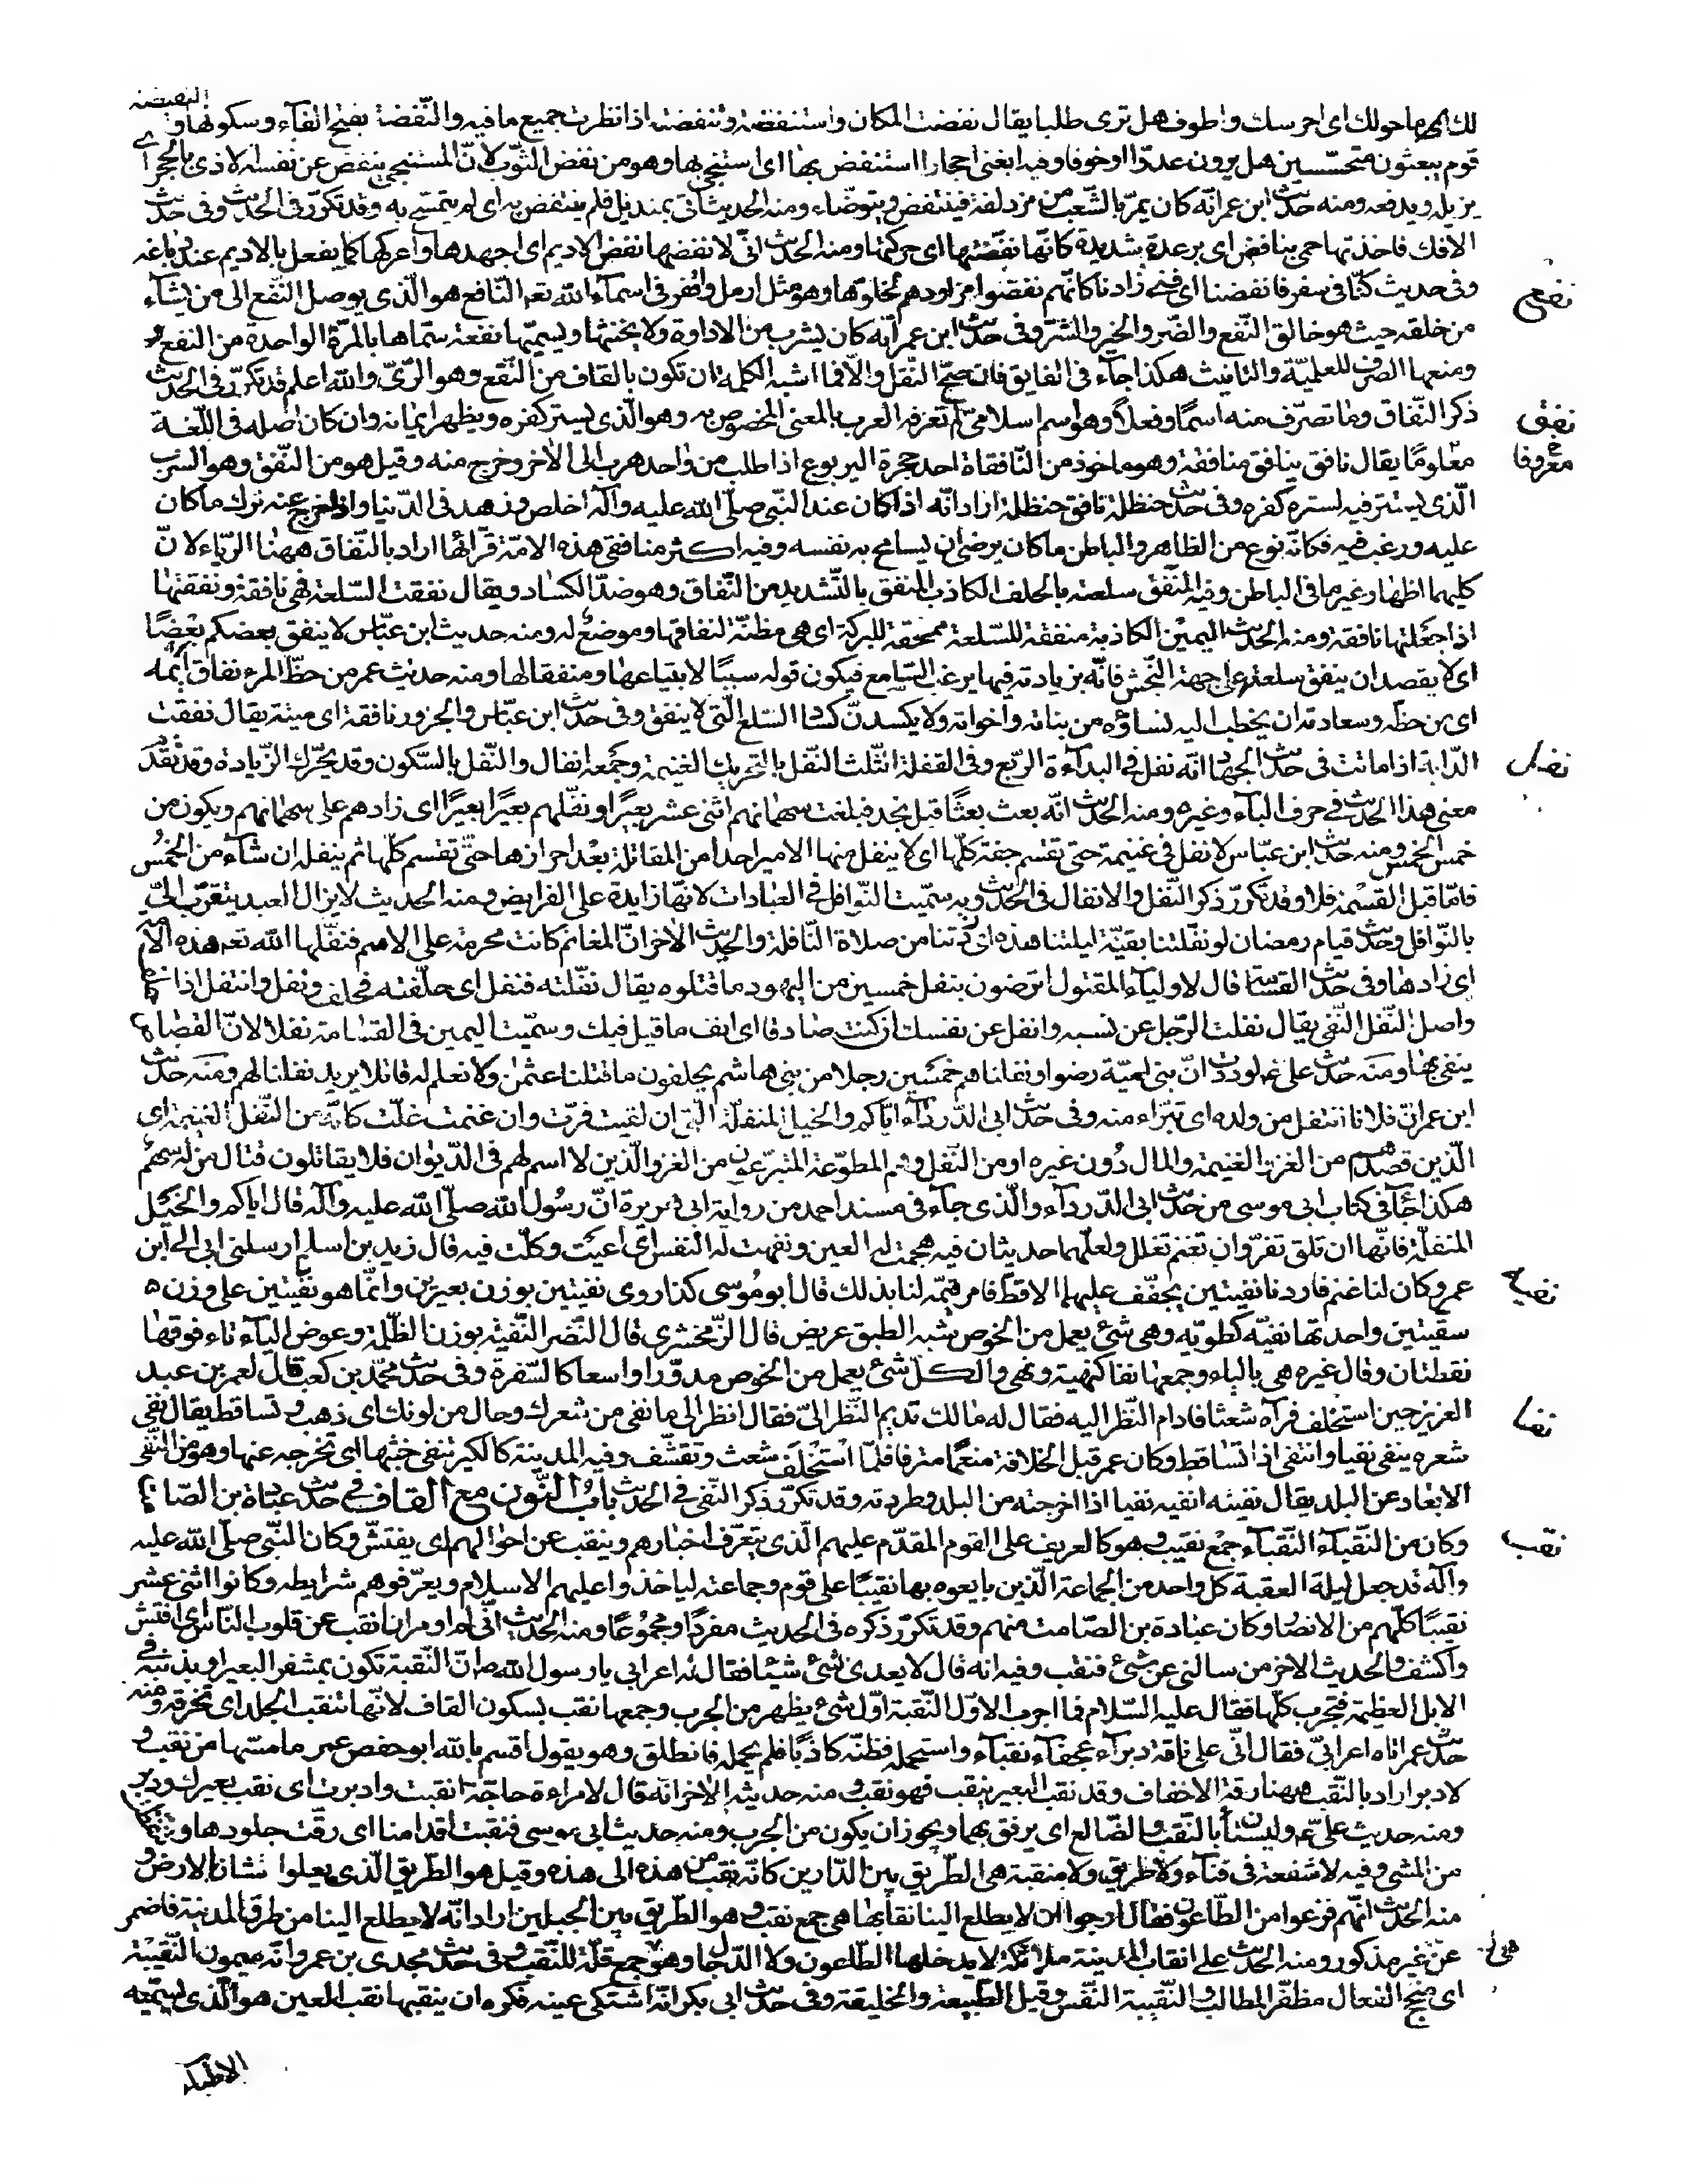 لك ما حولك اى احرسك واطوف هل ترى طلبا يقال نفضت المكان واستنفضته وتنفضته اذا نظرت جميع ما فيه والنّفضة بفتح الفآء وسكونها و النفيضة
قوم يبعثون متحسّسين هل يرون عدوّا او خوفا وفيه ابغنى احجارا استنفض بها اى استنجى بها وهو من نفض الثّوب لانّ المستنجى ينفض عن نفسه الاذى بالحجر اى
يزيله ويدفعه ومنه حديث ابن عمر انّه كان يمرّ بالشّعب من مزدلفة فينتفض ويتوضّاء ومنه الحديث اتى بمنديل فلم ينتفض به اى لم يتمسّح به وقد تكرّر فى الحديث وفى حديث
الافك فاخذتها حمى بنافض اى برعدة شديدة كانّها نفضتها اى حركتها ومنه الحديث انّى لانفضها نفض الاديم اى اجهدها واعركها كما يفعل بالاديم عند دباغه
وفى حديث كنّا فى سفر فانفضنا اى فنى زادنا كانّهم نفضوا مزاودهم لخلوّها وهو مثل ارمل واقفر فى اسمآء الله تعم النّافع هو الّذى يوصل النّفع الى من يشآء
نفع
من خلقه حيث هو خالق النّفع والضّر والخير والشّر وفى حديث ابن عمر انّه كان يشرب من الاداوة ولا يخنثها ويسمّيها نفعة سمّاها بالمرّة الواحدة من النفع و
ومنعها الصرف للعلميّة والتانيث هكذا جآء فى الفايق فان صحّ النّقل والّا فما اشبه الكلمة ان تكون بالقاف من النّقع وهو الرّىّ والله اعلم قد تكرّر فى الحديث
نفق
ذكر النّفاق وما تصرّف منه اسمًا وفعلًا وهو اسم اسلامىّ لم تعرفه العرب بالمعنى المخصوص به وهو الّذى يستر كفره ويظهر ايمانه وان كان اصله فى اللّغة
معروفا
معلومًا يقال نافق ينافق منافقة وهو ماخوذ من النّافقاة احد جحرة اليربوع اذا طلب من واحد هرب الى الاخر وخرج منه وقيل هو من النّفق وهو السّرب
الّذى يستتر فيه لستره كفره وفى حديث حنظلة نافق حنظلة اراد انّه اذا كان عند النّبى صلّى الله عليه وآله اخلص وزهد فى الدّنيا واذا خرج عنه ترك ما كان
عليه ورغب فيه فكانّه نوع من الظاهر والباطن ما كان يرضى ان يسامح به نفسه وفيه اكثر منافقى هذه الامّة قرّائها اراد بالنّفاق ههنا الريّاء لانّ
كليهما اظهار غير ما فى الباطن وفيه المنفّق سلعته بالحلف الكاذب المنفق بالتّشديد من النّفاق وهو ضدّ الكساد ويقال نفقت السّلعة فهى نافقة ونفقتها
اذا جعلتها نافقة ومنه الحديث اليمين الكاذبة منفقة للسّلعة ممحقة للبركة اى هى مظنّة لنفاقها وموضع له ومنه حديث ابن عبّاس لا ينفق بعضكم بعضًا
اى لا يقصد ان ينفق سلعته على جهة النّجش فانّه بزيادته فيها يرغب السّامع فيكون قوله سببًا لابتياعها ومنفقا لها ومنه حديث عمر من حظّ المرء نفاق ايّمه
اى من حظّه وسعادته ان يخطب اليه نساؤه من بناته واخواته ولا يكسدن كساد السّلع الّتى لا ينفق وفى حديث ابن عبّاس والجزور نافقة اى ميتة يقال نفقت
نفل
الدّابة اذا ماتت فى حديث الجهاد انّه نفل فى البدآءة الرّبع وفى القفلة الثّلث النفل بالتّحريك الغنيمة وجمعه انفال والنّفل بالسّكون وقد يحرّك الزّيادة وقد تقدّم
معنى هذا الحديث فى حرف البآء وغيره ومنه الحديث انّه بعث بعثًا قبل نجد فبلغت سهمانهم اثنى عشر بعيرًا ونفّلهم بعيرًا بعيرًا اى زادهم على سهمانهم ويكون من
خمس الخمس ومنه حديث ابن عبّاس لا نفل فى غنيمة حتى تقسم جفة كلّها اى لا ينفل منها الامير احدا من المقاتلة بعد احرازها حتّى تقسم كلّها ثم ينفله ان شآء من الخمس
فامّا قبل القسمة فلا وقد تكرّر ذكر النّفل والانفال فى الحديث وبه سمّيت النّوافل فى العبادات لانّها زايدة على الفرايض ومنه الحديث لا يزال العبد يتقرّب الىّ
بالنّوافل وحديث قيام رمضان لو نفّلتنا بقيّة ليلتنا هذه اى زدتنا من صلاة النّافلة والحديث الاخر انّ المغانم كانت محرمة على الامم فنفّلها الله تعم هذه الامّة
اى زادها وفى حديث القسامة قال لاوليآء المقتول اترضون بنفل خمسين من اليهود ما قتلوه يقال نفّلته فنفل اى حلّفته فحلف ونفل وانتفل اذا حلف
واصل النّفل النّفى يقال نفلت الرّجل عن نسبه وانفل عن نفسك ان كنت صادقا اى انف ما قيل فيك وسمّيت اليمين فى القسامة نفلا لانّ القصاص
ينفى بها ومنه حديث على ع لوددت انّ بنى اميّة رضوا ونفلناهم خمسين رجلا من بنى هاشم يحلفون ما قتلنا عثمن ولا نعلم له قاتلا يريد نفلنا لهم ومنه حديث
ابن عمر انّ فلانا انتفل من ولده اى تبرّاء منه وفى حديث ابى الدّردآء ايّاكم والخيل المنفلة الّتى ان لقيت فرّت وان غنمت غلّت كانّه من النّفل الغنيمة اى
الّذين قصدهم من الغزو الغنيمة والمال دون غيره او من النّفل وهم المطوّعة المتبرّعون من الغزو الّذين لا اسم لهم فى الدّيوان فلا يقاتلون قتال من له سهم
هكذا جآء فى كتاب ابى موسى من حديث ابى الدّردآء والّذى جآء فى مسند احمد من رواية ابى هريرة انّ رسول الله صلّى الله عليه وآله قال اياكم والخيل
المنفلة فانّها ان تلق تفرّ وان تغنم تغلل ولعلّهما حديثان فيه هجمت له العين ونفهت له النفس اى اعيت وكلّت فيه قال زيد بن اسلم ارسلنى ابى الى ابن
نفيه
عمر وكان لنا غنم فاردنا نفيتين يجفّف عليهما الاقط فامر قيّمه لنا بذلك قال ابو موسى كذا روى نفيتين بوزن بعيرين وانّما هو نفيتين على وزن
سقيتين واحدتها نفيّه كطويّه وهى شئ يعمل من الخوص شبه الطبق عريض قال الزّمخشرى قال النّضر النّفثة بوزن الظّلمة وعوض اليآء تاء فوقها
نقطتان وقال غيره هى بالياء وجمعها نفا كنهية ونهى والكلّ شئ يعمل من الخوص مدوّرا واسعا كالسّفرة وفى حديث محمّد بن كعب قال لعمر بن عبد
نفا
العزيز حين استخلف فرآه شعثا فادام النّظر اليه فقال له مالك تديم النّظر الىّ فقال انظر الى ما نفى من شعرك وحال من لونك اى ذهب وتساقط يقال نفى
شعره ينفى نفيا وانتفى اذا تساقط وكان عمر قبل الخلافة منعّمًا مترفا فلمّا استخلف شعث وتقشّف وفيه المدينة كالكير تنفى خبثها اى تخرجه عنها وهو من النّفى
الابعاد عن البلد يقال نفيته انفيه نفيا اذا اخرجته من البلد وطردته وقد تكرّر ذكر النّفى فى الحديث باب النّون مع القاف فى حديث عبادة بن الصّامت
نقب
وكان من النّقبآء النّقباء جمع نقيب وهو كالعريف على القوم المقدّم عليهم الّذى يتعرّف اخبارهم وينقب عن احوالهم اى يفتّش وكان النّبى صلّى الله عليه
وآله قد جعل ليلة العقبة كل واحد من الجماعة الّذين بايعوه بها نقيبًا على قوم وجماعته لياخذوا عليهم الاسلام ويعرّفوهم شرايطه وكانوا اثنى عشر
نقيبًا كلّهم من الانصار وكان عبادة بن الصّامت منهم وقد تكرّر ذكره فى الحديث مفردًا ومجموعًا ومنه الحديث انّى لم اومر ان انقب عن قلوب النّاس اى افتش
واكشف والحديث الاخر من سالنى عن شئ فنقب وفيه انه قال لا يعدى شئ شيئا فقال له اعرابى يا رسول الله ص انّ النّقبة تكون بمشفر البعير او بذنبه فى
الابل العظيمة فتجرب كلّها فقال عليه السّلام فما اجرب الاوّل النّقبة اوّل شئ يظهر من الجرب وجمعها نقب بسكون القاف لانّها تنقب الجلد اى تخرقه ومنه
حديث عمر اتاه اعرابىّ فقال انّى على ناقة دبرآء عجفآء نقبآء واستحمله فظنّه كاذبًا فلم يحمله فانطلق وهو يقول اقسم بالله ابو حفص عمر ما مسّها من نقب و
لا دبر اراد بالنّقب ههنا رقة الاخفاف وقد نقب البعير ينقب فهو نقب ومنه حديثه الاخر انّه قال لامراءة حاجّة انقبت وادبرت اى نقب بعيرك ودبر
ومنه حديث علىّ ع وليستأن بالنّقب والضّالع اى يرفق بهما ويجوز ان يكون من الجرب ومنه حديث ابى موسى فنقبت اقدامنا اى رقّت جلودها وتنفّطت
من المشى وفيه لا شفعة فى فنآء ولا طريق ولا منقبة هى الطّريق بين الدّارين كانّه نقب من هذه الى هذه وقيل هو الطّريق الّذى يعلوا نشاز الارض و
منه الحديث انّهم فزعوا من الطّاعون فقال ارجوا ان لا يطلع الينا نقابها هى جمع نقب وهو الطّريق بين الجبلين اراد انّه لا يطلع الينا من طرق المدينة فاضمر
عن غير مذكور ومنه الحديث على انقاب المدينة ملائكة لا يدخلها الطّاعون ولا الدّجال وهو جمع قلّة للنّقب وفى حديث مجدى بن عمر وانّه ميمون النّقيبة
اى منجح الفعال مظفّر المطالب والنّقيبة النّفس وقيل الطبيعة والخليقة وفى حديث ابى بكر انّه اشتكى عينه فكره ان ينقبها نقب العين هو الّذى يسمّيه
الاطباء